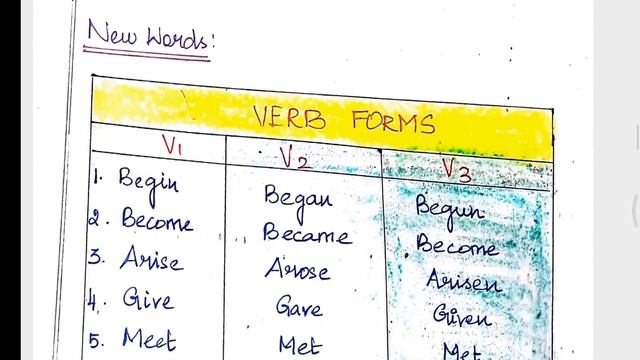 New Words:
VERB FORMS
V1 V2 V3
1. Begin Began Begun
2. Become Became Become
3. Arise Arose Arisen
4. Give Gave Given
5. Meet Met Met